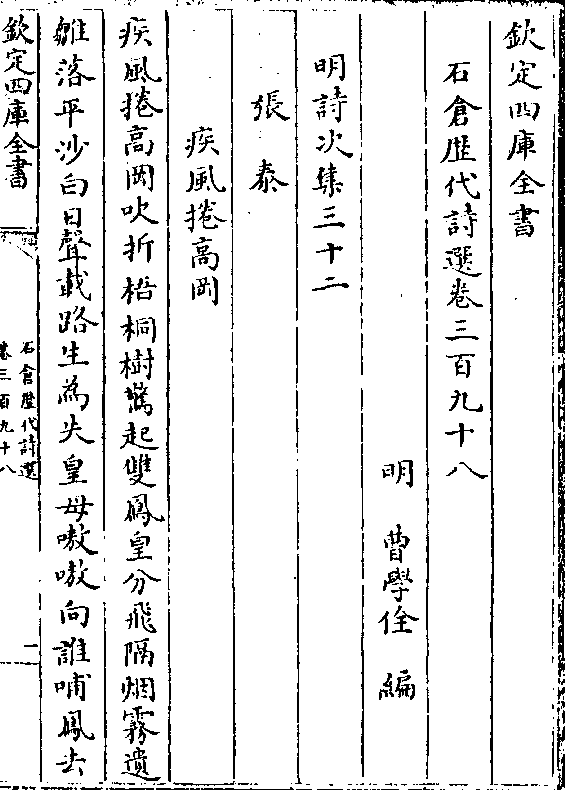 欽定四庫全書
石倉歷代詩選卷三百九十八
明 曹學佺 編
明詩次集三十二
張泰
疾風捲高岡
疾風捲高岡吹折梧桐樹驚起雙鳳皇分飛隔烟霧遺
雛落平沙白日聲載路生為失皇母嗷嗷向誰哺鳳去
欽定四庫全書
石倉歷代詩選
卷三百九十八
一